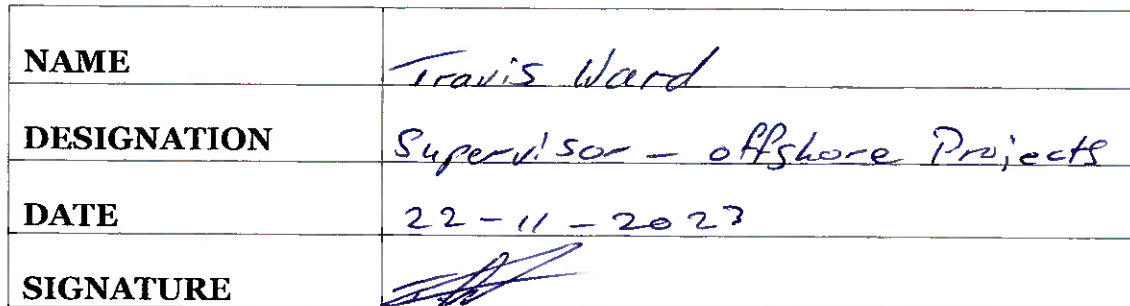 NAME Travis Ward
DESIGNATION Supervisor - offshore Projects
DATE 22-11-2023
SIGNATURE